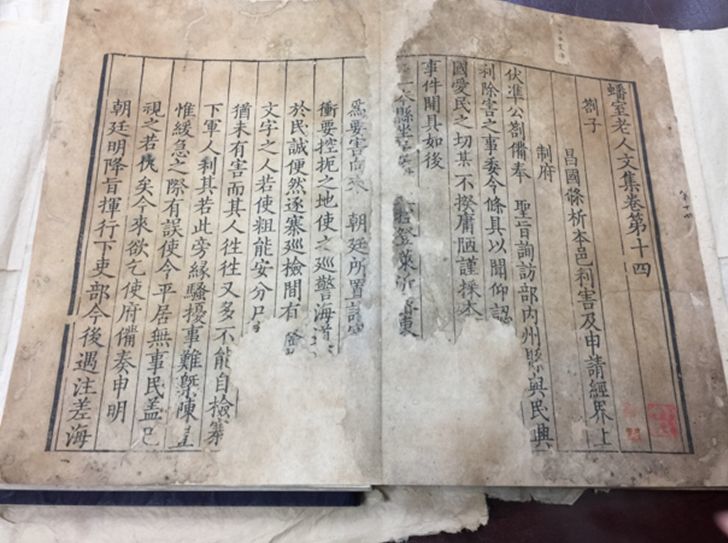 蟠室老人文集卷第十四
劄子
昌國條析本邑利害及申請經界上
制府
伏準公劄備奉 聖旨詢訪部內州縣與民興
利除害之事委令條具以聞仰認
國愛民之切甚不揆庸陋謹採本
事件開具如後
今縣坐 登萊 東
爲要害向來 朝廷所置諸寨
衝要控扼之地使之廵警海道
於民誠便然逐寨廵檢間有
文字之人若使粗能安分
猶未有害而其人徃徃又多不能自檢
下軍人刻其若此旁縁騷擾事難槩陳
惟緩急之際有誤使令平居無事民盖已
視之若 矣今來欲乞使府備奏申明
朝廷明降旨揮行下吏部今後遇注差海